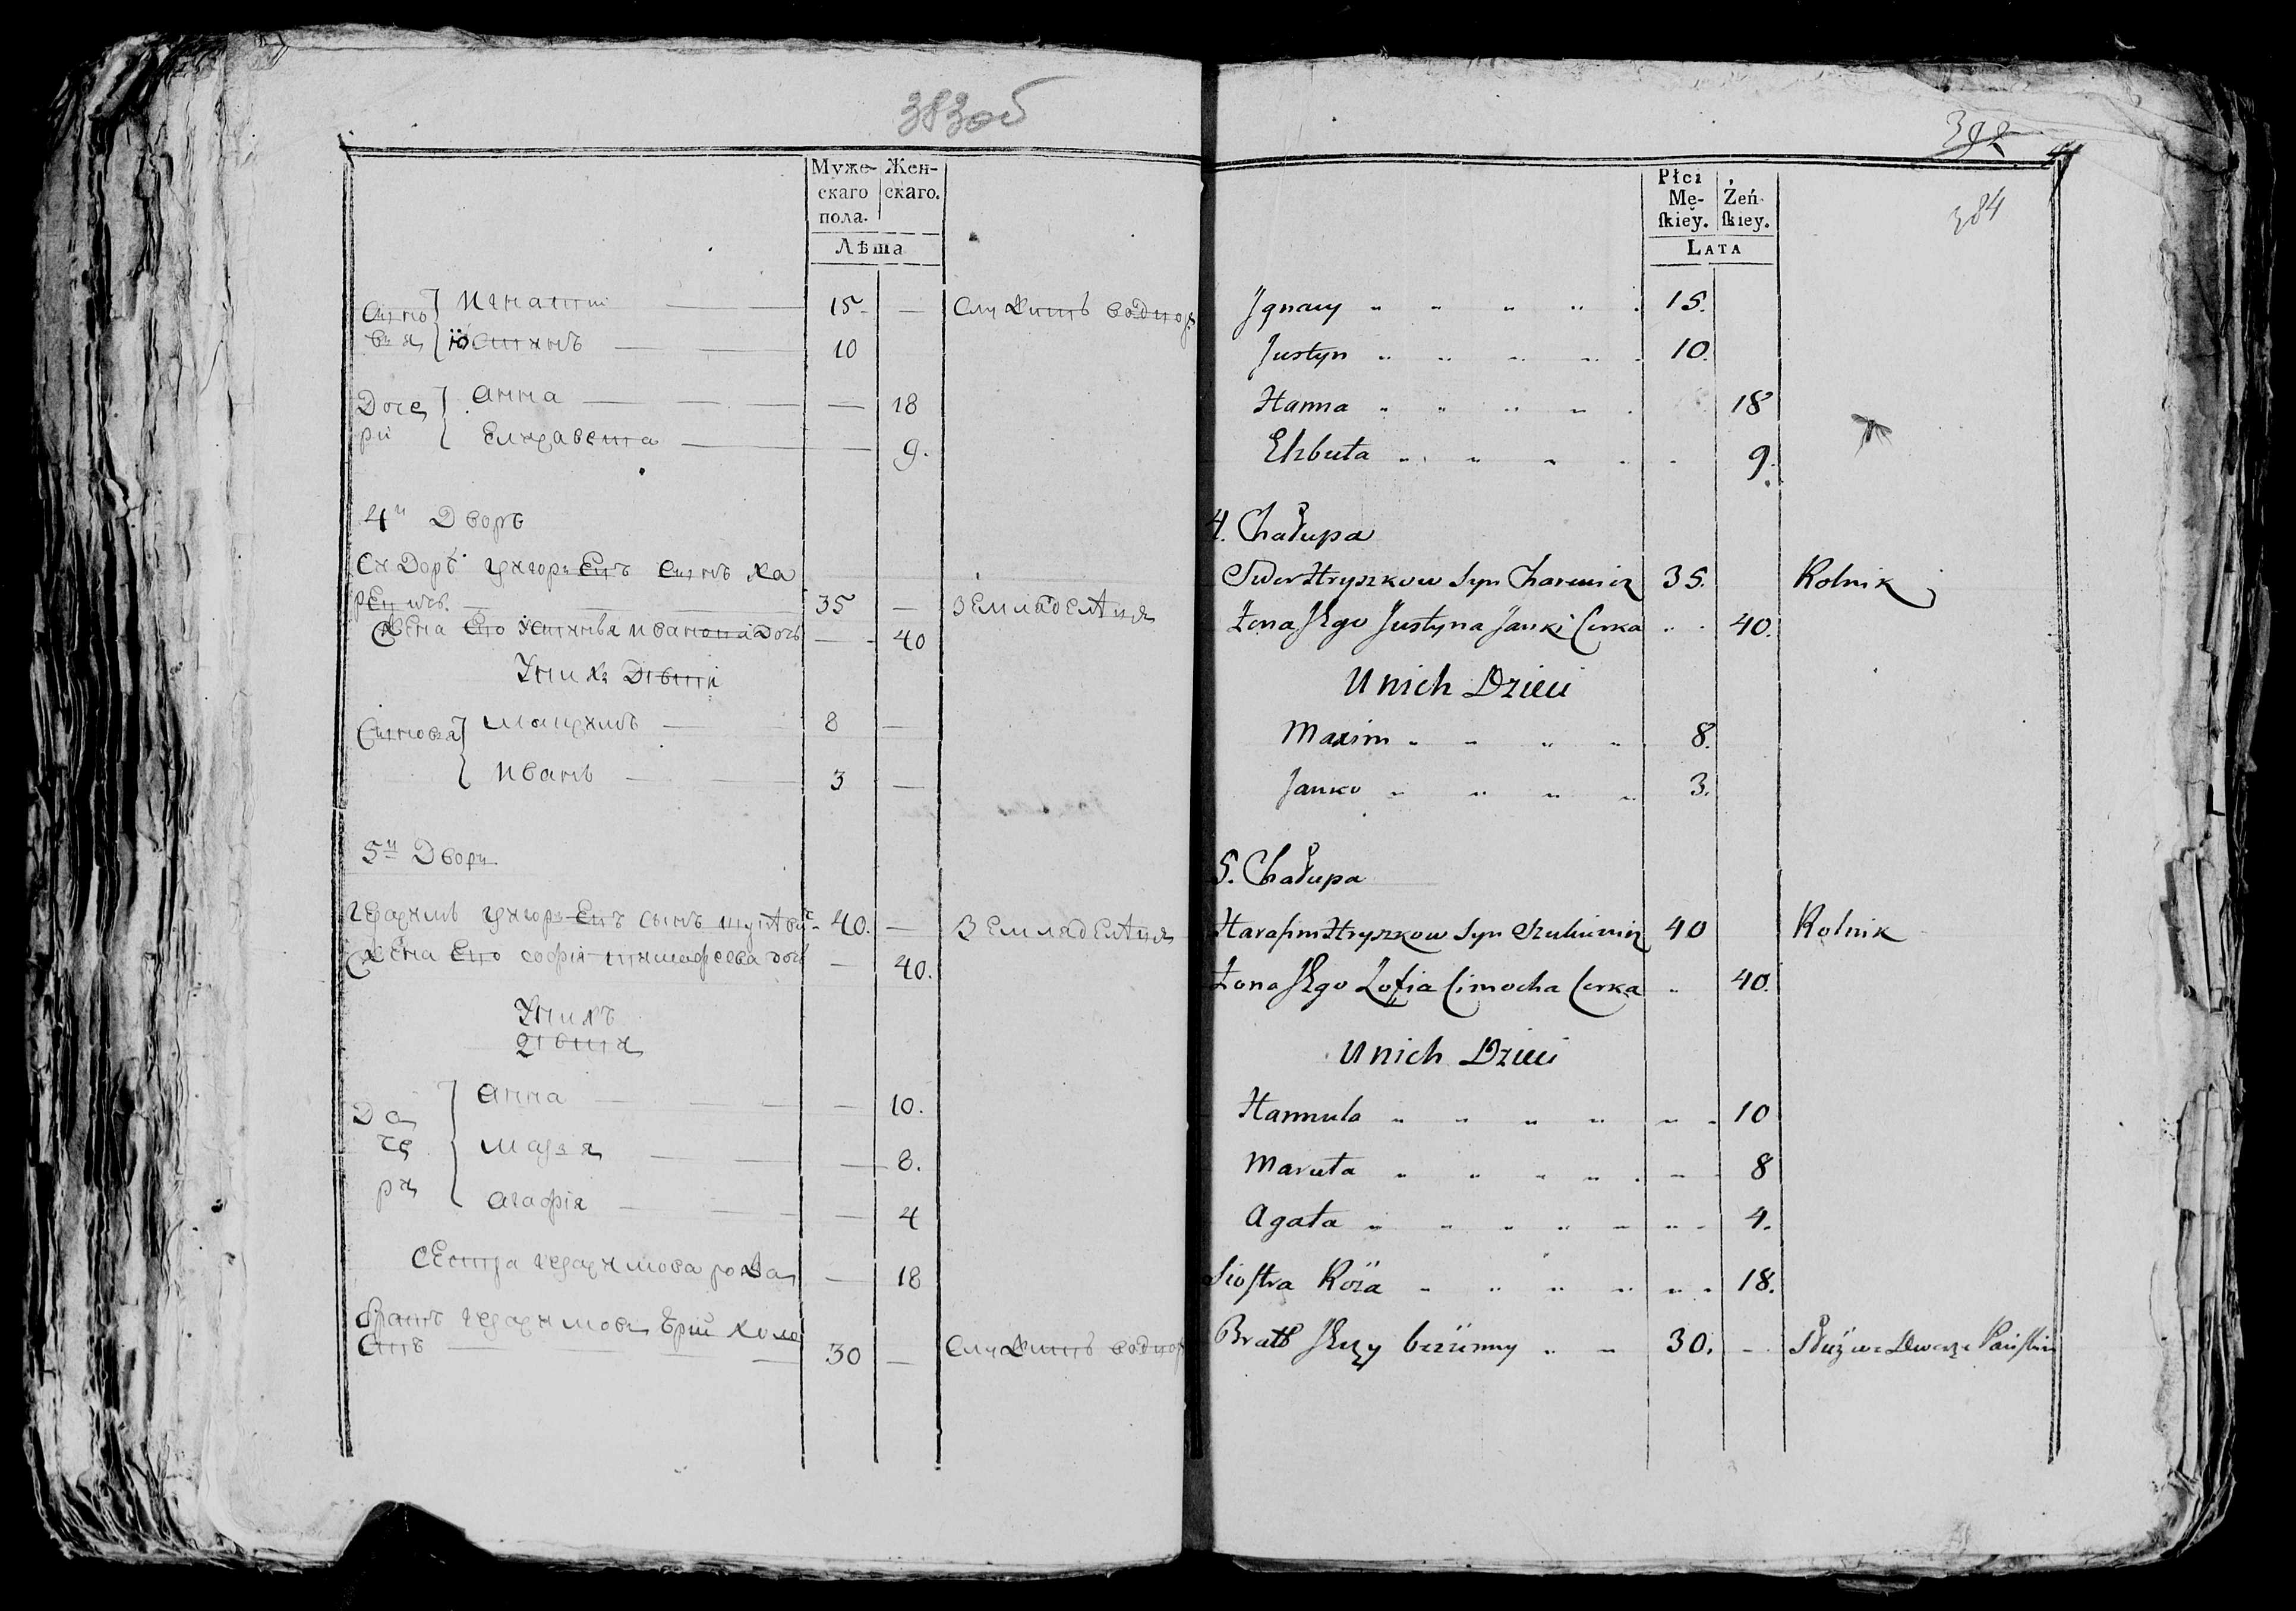 383об
Муже-
скаго
пола.
Жен-
скаго.
Лѣта
Сыно
вья
Игнатий 15. —
Служитъ водвор
Юстинъ 10
Доче
ри
Анна — 18
Елизавета — 9.
4й Дворъ
Сидоръ Григорьевъ Сынъ Ха
35 — Земладелецъ
Жена Его Иванова Дочь — 40
У них Дети
Сыновья
Максимъ 8 —
Иванъ 3 —
5й Дворъ
Герасимъ Григорьевъ сынъ 40. — Земладелецъ
Жена Его Софія Тимофеева дочь — 40.
У нихъ
Дети
До
че
ри
Анна — 10.
Марья — 8.
Агафія — 4
Сестра Герасимова Роза — 18
Братъ Герасимовъ Юрий Холо
стъ 30 — Служитъ водвор
392
384
Płci
Mę-
ſkiey.
Żeń-
ſkiey.
LATA
Jgnacy 15.
Justyn 10.
Hanna 18
Elżbieta 9.
4. Chałupa
Sidor Hryszkow Syn 35. Rolnik
Żona Jego Justyna Janki Corka 40.
U nich Dzieci
Maxim 8.
Janko 3.
5. Chałupa
Harasim Hryszkow Syn 40 Rolnik
Żona Jego Zofia Cimocha Corka 40.
U nich Dzieci
Hannula 10
Maruta 8
Agata 4.
Siostra Róża 18.
Brat Jerzy bezżenny 30. — Służy we Dworze